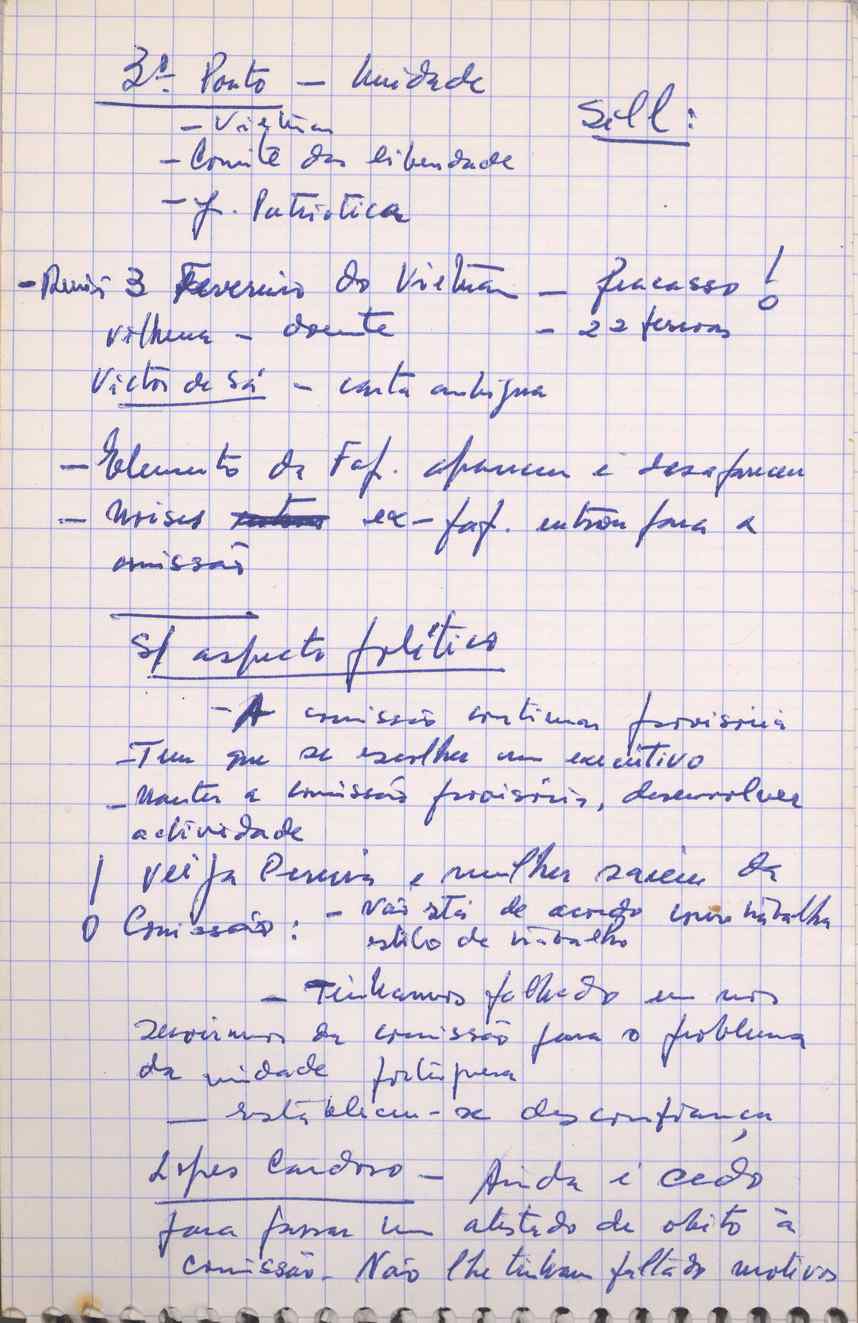 3º Ponto — Unidade
Sill:
- Vietnam
- Comité das liberdade
- f. Patriotica
- 3 Fevereiro do Vietnam — fracasso !
Vilhena — doente - 22 pessoas
Victor de Sá — carta ambigua
— Elemento da Fap. aparecem e desaparecem
— Moises ex-fap. entrou para a
comissão
S/ aspecto politico
- A comissão continua provisória
- Tem que se escolher um executivo
- Manter a comissão provisória, desenvolver
actividade
! Veiga Pereira e mulher saiem da
Comissão: - Não stá de acordo com trabalha
estilo de trabalho
- Tinhamos falhado em nos
servirmos da comissão para o problema
da unidade portuguesa
— estabelecem-se desconfiança
Lopes Cardoso — Ainda é cedo
para passar um atestado de obito à
comissão. Não lhe tinham faltado motivos